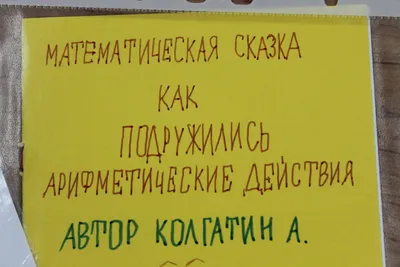 МАТЕМАТИЧЕСКАЯ СКАЗКА
КАК
ПОДРУЖИЛИСЬ
АРИФМЕТИЧЕСКИЕ ДЕЙСТВИЯ
АВТОР КОЛГАТИН А.